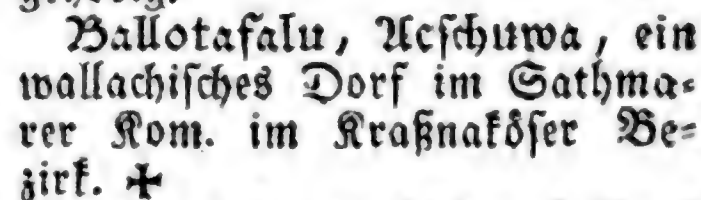 Ballotafalu, Acschuwa, ein
wallachisches Dorf im Sathma-
rer Kom. im Kraßnaköser Be-
zirk. ✠